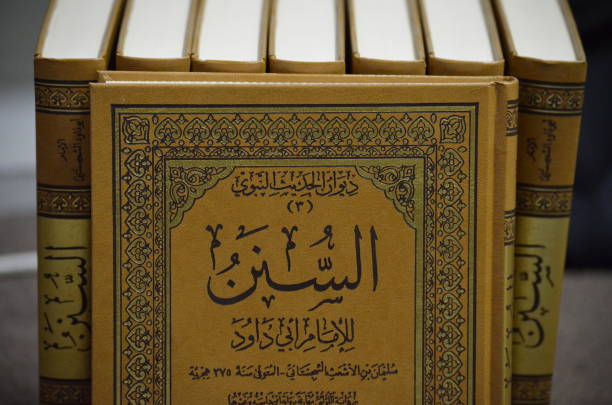 ديوان الحديث النبوي
(٣)
السُّنَنُ
للإمام أبي داود
سليمان بن الأشعث السجستاني - المتوفى سنة ٢٧٥ هجرية
السنن
السنن